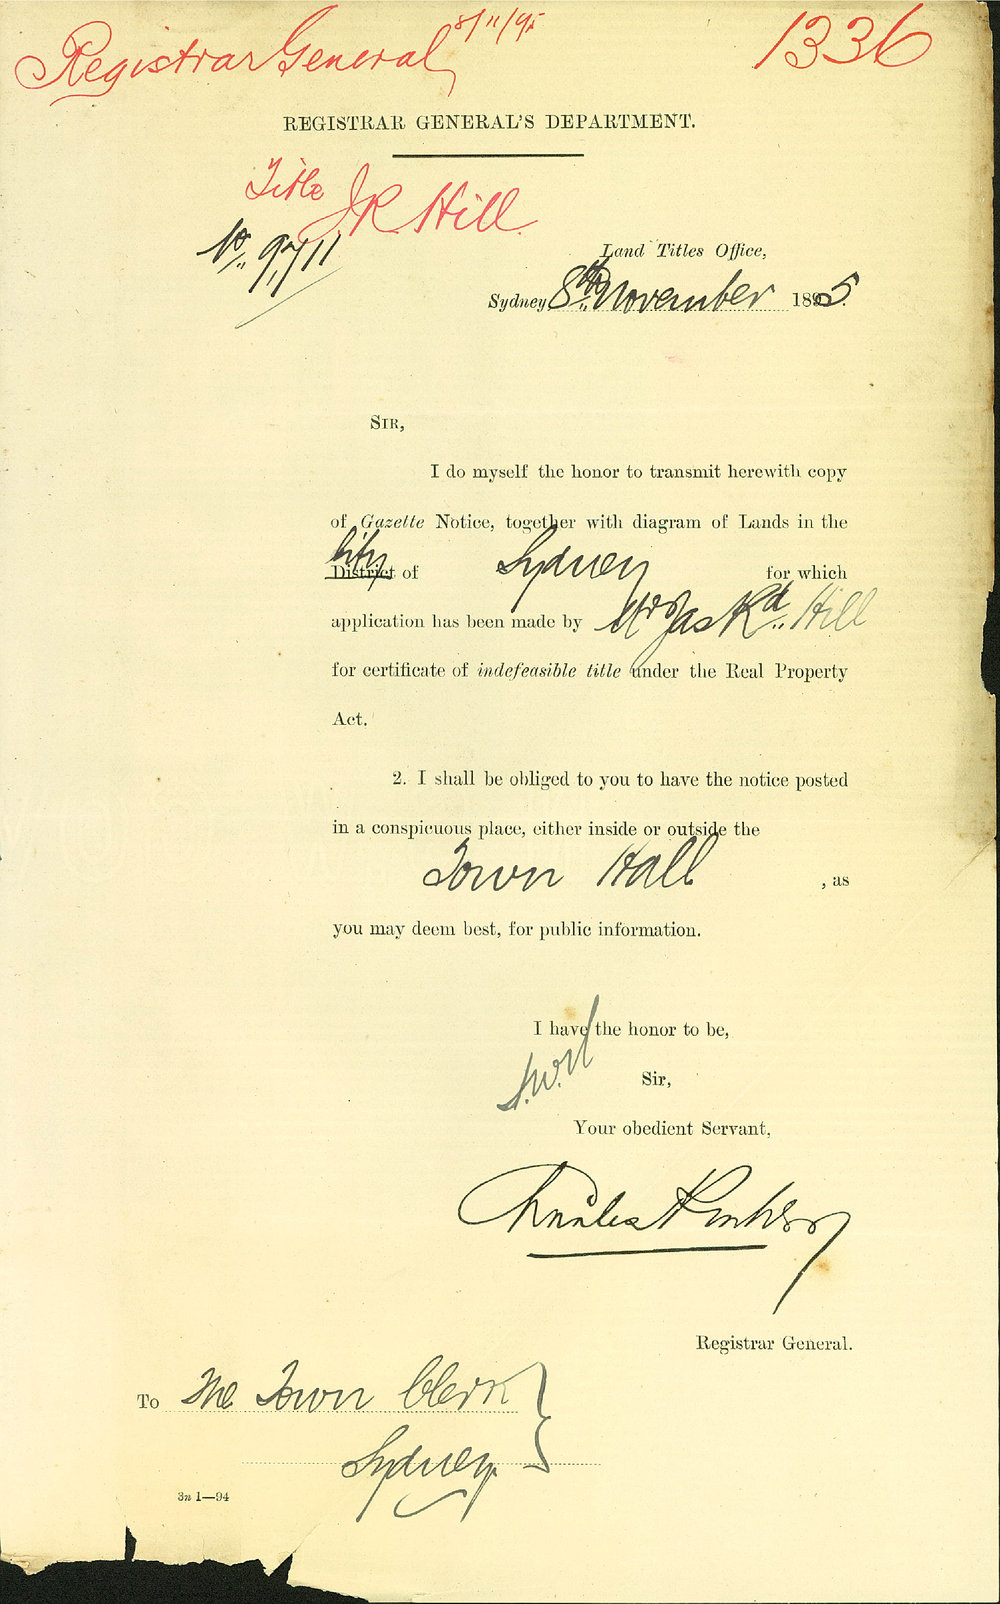 Registrar General 8/11/95 1336
REGISTRAR GENERAL'S DEPARTMENT.
Title J R Hill
No. 9,711
Land Titles Office,
Sydney, 8th November 1895.
SIR,
I do myself the honor to transmit herewith copy
of Gazette Notice, together with diagram of Lands in the
City
District of Sydney for which
application has been made by Mrs Jas Rd. Hill
for certificate of indefeasible title under the Real Property
Act.
2. I shall be obliged to you to have the notice posted
in a conspicuous place, either inside or outside the
Town Hall , as
you may deem best, for public information.
I have the honor to be,
Sir,
Your obedient Servant,
Charles
Registrar General.
To The Town Clerk
Sydney
3n 1—94